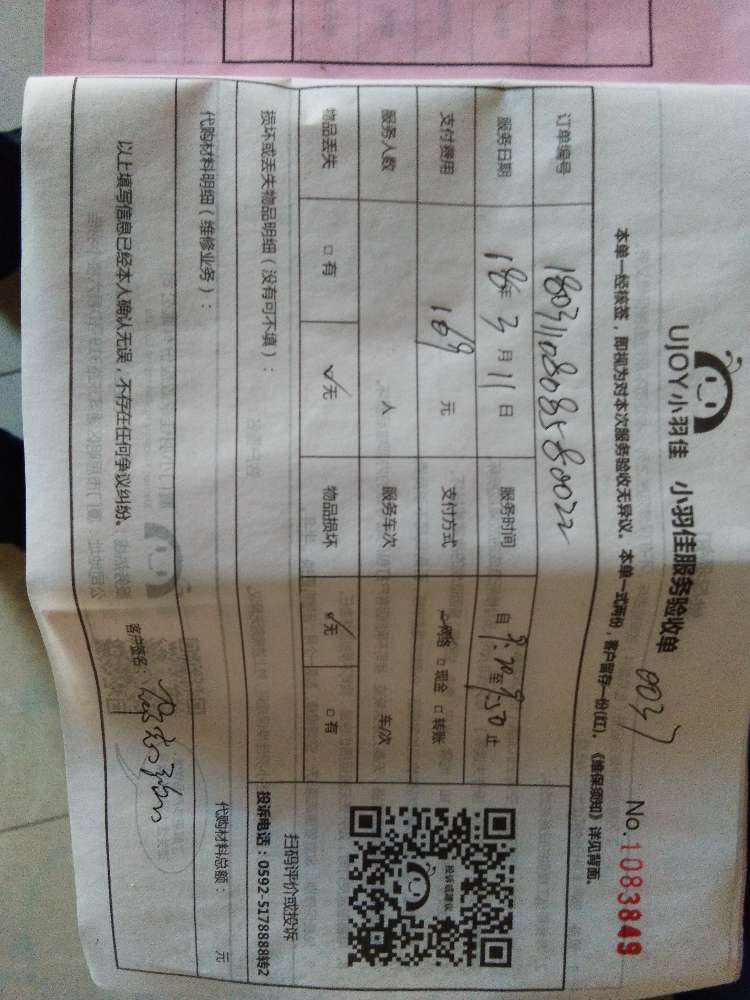 UJOY小羽佳 小羽佳服务验收单 0037
No.1083849
本单一经核签，即视为对本次服务验收无异议。本单一式两份，客户留存一份(红)。《维保须知》详见背面。
订单编号 1803110808580022
服务日期 18年 3月 11日 服务时间 自 9:20 至 9:50 止
支付费用 169 元 支付方式 ☑网络 □现金 □转账
服务人数 人 服务车次 车/次
物品丢失 □有 ☑无 物品损坏 ☑无 □有
损坏或丢失物品明细（没有可不填）：
投诉或建议
扫码评价或投诉
投诉电话：0592-5178888转2
代购材料明细（维修业务）： 代购材料总额： 元
以上填写信息已经本人确认无误，不存在任何争议纠纷。 客户签名：